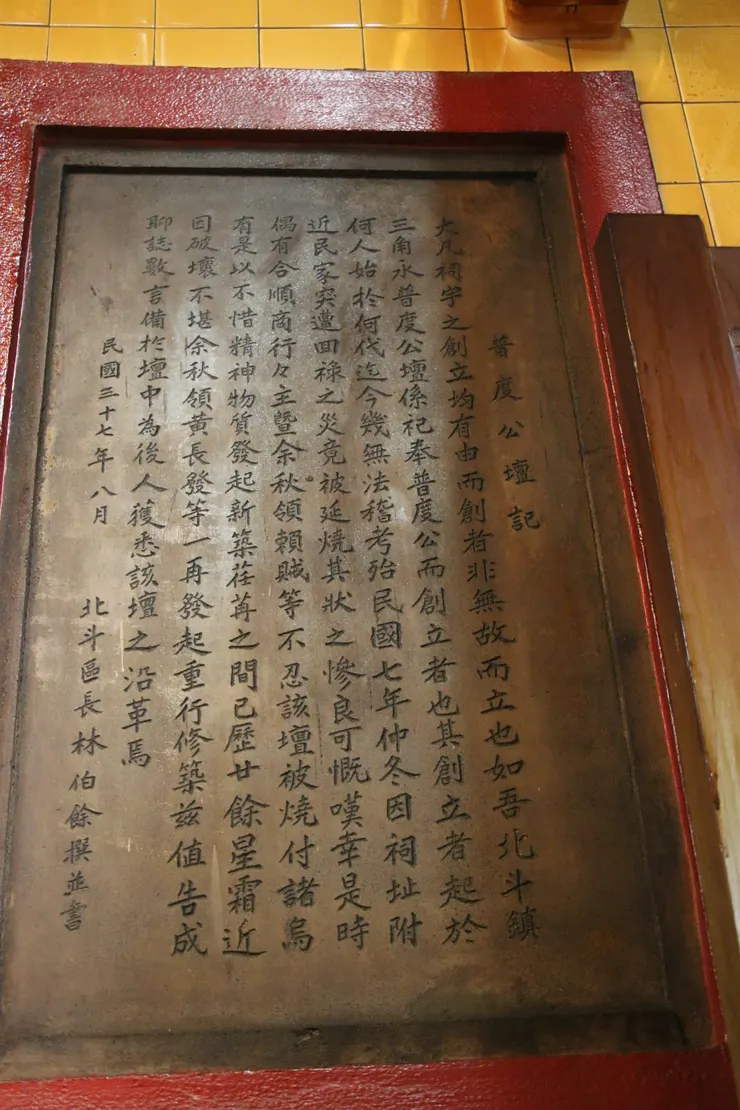 普度公壇記
大凡祠宇之創立均有由而創者非無故而立也如吾北斗鎮
三角永普度公壇係祀奉普度公而創立者也其創立者起於
何人始於何代迄今幾無法稽考殆民國七年仲冬因祠址附
近民家突遭回祿之災竟被延燒其狀之慘良可慨嘆幸是時
偶有合順商行々主暨余秋領賴賊等不忍該壇被燒付諸烏
有是以不惜精神物質發起新築荏苒之間已歷廿餘星霜近
因破壞不堪余秋領黃長發等一再發起重行修築茲值告成
聊誌數言備於壇中為後人獲悉該壇之沿革焉
民國三十七年八月
北斗區長林伯餘撰並書